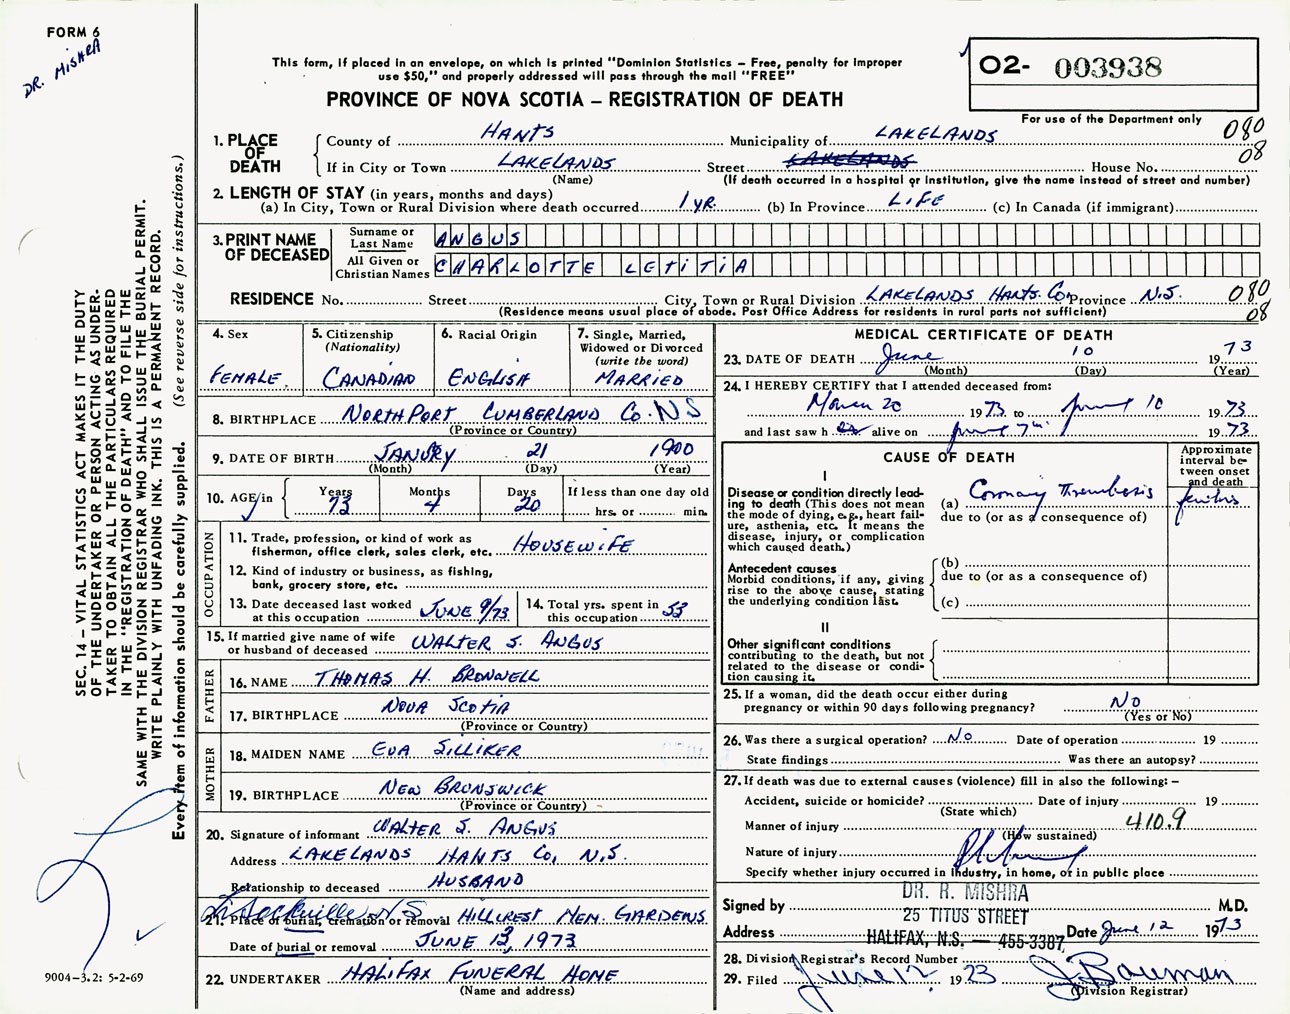 FORM 6
DR. MISHRA
This form, if placed in an envelope, on which is printed "Dominion Statistics – Free, penalty for improper
use $50," and properly addressed will pass through the mail "FREE"
PROVINCE OF NOVA SCOTIA – REGISTRATION OF DEATH
O2- 003938
For use of the Department only
080
08
1. PLACE OF DEATH
County of HANTS Municipality of LAKELANDS
If in City or Town LAKELANDS Street LAKELANDS House No.
(Name) (If death occurred in a hospital or institution, give the name instead of street and number)
2. LENGTH OF STAY (in years, months and days)
(a) In City, Town or Rural Division where death occurred 1 YR. (b) In Province LIFE (c) In Canada (if immigrant)
3. PRINT NAME OF DECEASED
Surname or Last Name ANGUS
All Given or Christian Names CHARLOTTE LETITIA
RESIDENCE No. Street City, Town or Rural Division LAKELANDS HANTS. Co, Province N.S. 080
(Residence means usual place of abode. Post Office Address for residents in rural parts not sufficient) 08
4. Sex
FEMALE.
5. Citizenship
(Nationality)
CANADIAN
6. Racial Origin
ENGLISH
7. Single, Married,
Widowed or Divorced
(write the word)
MARRIED
8. BIRTHPLACE NORTHPORT CUMBERLAND CO. NS
(Province or Country)
9. DATE OF BIRTH JANURY 21 1900
(Month) (Day) (Year)
10. AGE/in
Years 73
Months 4
Days 20
If less than one day old
hrs. or min.
OCCUPATION
11. Trade, profession, or kind of work as
fisherman, office clerk, sales clerk, etc. HOUSEWIFE
12. Kind of industry or business, as fishing,
bank, grocery store, etc.
13. Date deceased last worked
at this occupation JUNE 9/73
14. Total yrs. spent in
this occupation 53
15. If married give name of wife
or husband of deceased WALTER S. ANGUS
FATHER
16. NAME THOMAS H. BRONWELL
17. BIRTHPLACE NOVA SCOTIA
(Province or Country)
MOTHER
18. MAIDEN NAME EVA SILLIKER
19. BIRTHPLACE NEW BRONSWICK
(Province or Country)
20. Signature of informant WALTER S. ANGUS
Address LAKELANDS HANTS Co, N.S.
Relationship to deceased HUSBAND
Sackville N S
21. Place of burial, cremation or removal HILLCREST MEM. GARDENS
Date of burial or removal JUNE 13, 1973
22. UNDERTAKER HALIFAX FUNERAL HOME
(Name and address)
MEDICAL CERTIFICATE OF DEATH
23. DATE OF DEATH June 10 1973
(Month) (Day) (Year)
24. I HEREBY CERTIFY that I attended deceased from:
March 20 1973 to June 10 1973
and last saw h er alive on June 7th 1973
CAUSE OF DEATH
Approximate
interval be-
tween onset
and death
I
Disease or condition directly lead-
ing to death (This does not mean
the mode of dying, e.g., heart fail-
ure, asthenia, etc. It means the
disease, injury, or complication
which caused death.)
(a) Coronary Thrombosis
due to (or as a consequence of)
Antecedent causes
Morbid conditions, if any, giving
rise to the above cause, stating
the underlying condition last.
(b)
due to (or as a consequence of)
(c)
II
Other significant conditions
contributing to the death, but not
related to the disease or condi-
tion causing it.
25. If a woman, did the death occur either during
pregnancy or within 90 days following pregnancy? NO
(Yes or No)
26. Was there a surgical operation? No Date of operation 19
State findings Was there an autopsy?
27. If death was due to external causes (violence) fill in also the following: –
Accident, suicide or homicide? Date of injury 19
(State which)
Manner of injury 410.9
(How sustained)
Nature of injury
Specify whether injury occurred in industry, in home, or in public place
Signed by DR. R. MISHRA M.D.
25 TITUS STREET
Address HALIFAX, N.S. — 455-3387 Date June 12 1973
28. Division Registrar's Record Number
29. Filed June 12 1973 J. Bauman
(Division Registrar)
SEC. 14 – VITAL STATISTICS ACT MAKES IT THE DUTY
OF THE UNDERTAKER OR PERSON ACTING AS UNDER-
TAKER TO OBTAIN ALL THE PARTICULARS REQUIRED
IN THE "REGISTRATION OF DEATH" AND TO FILE THE
SAME WITH THE DIVISION REGISTRAR WHO SHALL ISSUE THE BURIAL PERMIT.
WRITE PLAINLY WITH UNFADING INK. THIS IS A PERMANENT RECORD.
Every item of information should be carefully supplied. (See reverse side for instructions.)
9004–3.2: 5-2-69